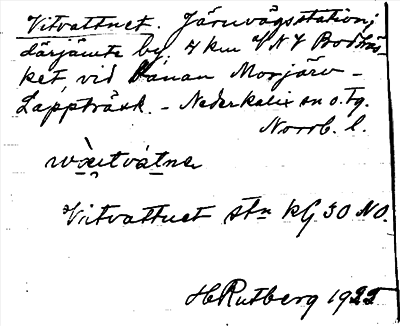 Vitvattnet. Järnvägsstation;
därjämte by. 7 km VNV Bodträs-
ket, vid banan Morjärv -
Lappträsk. - Nederkalix sn o. tg.
Norrb. l.
Vitvattnet stn kG 30 NO.
H Rutberg 1922